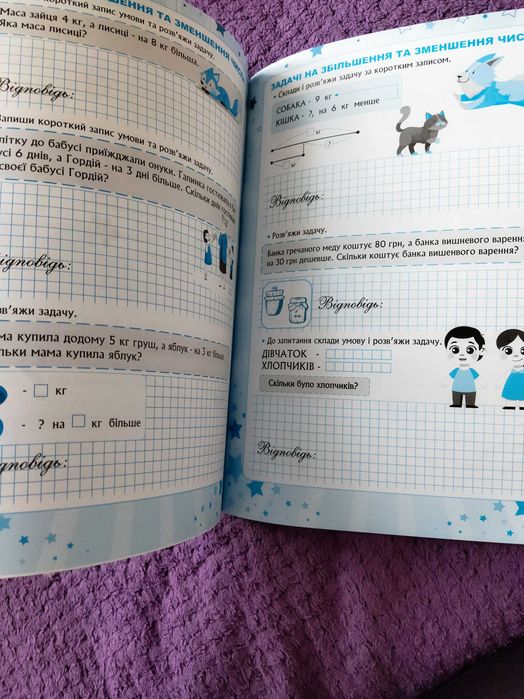 ЗБІЛЬШЕННЯ ТА ЗМЕНШЕННЯ ЧИСЛ
короткий запис умови та розв'яжи задачу.
Маса зайця 4 кг, а лисиці - на 8 кг більша.
Яка маса лисиці?
Відповідь:
Запиши короткий запис умови та розв'яжи задачу.
літку до бабусі приїжджали онуки. Галинка
усі 6 днів, а Гордій - на 3 дні більше. Скільки днів
своєї бабусі Гордій?
Відповідь:
розв'яжи задачу.
ма купила додому 5 кг груш, а яблук - на 3 кг більше.
льки мама купила яблук?
- кг
- ? на кг більше
Відповідь:
ЗАДАЧІ НА ЗБІЛЬШЕННЯ ТА ЗМЕНШЕННЯ ЧИСЛ
• Склади і розв'яжи задачу за коротким записом.
СОБАКА - 9 кг
КІШКА - ?, на 6 кг менше
кг
? кг
кг
Відповідь:
• Розв'яжи задачу.
Банка гречаного меду коштує 80 грн, а банка вишневого варення
на 30 грн дешевше. Скільки коштує банка вишневого варення?
Відповідь:
• До запитання склади умову і розв'яжи задачу.
ДІВЧАТОК -
ХЛОПЧИКІВ -
Скільки було хлопчиків?
Відповідь: